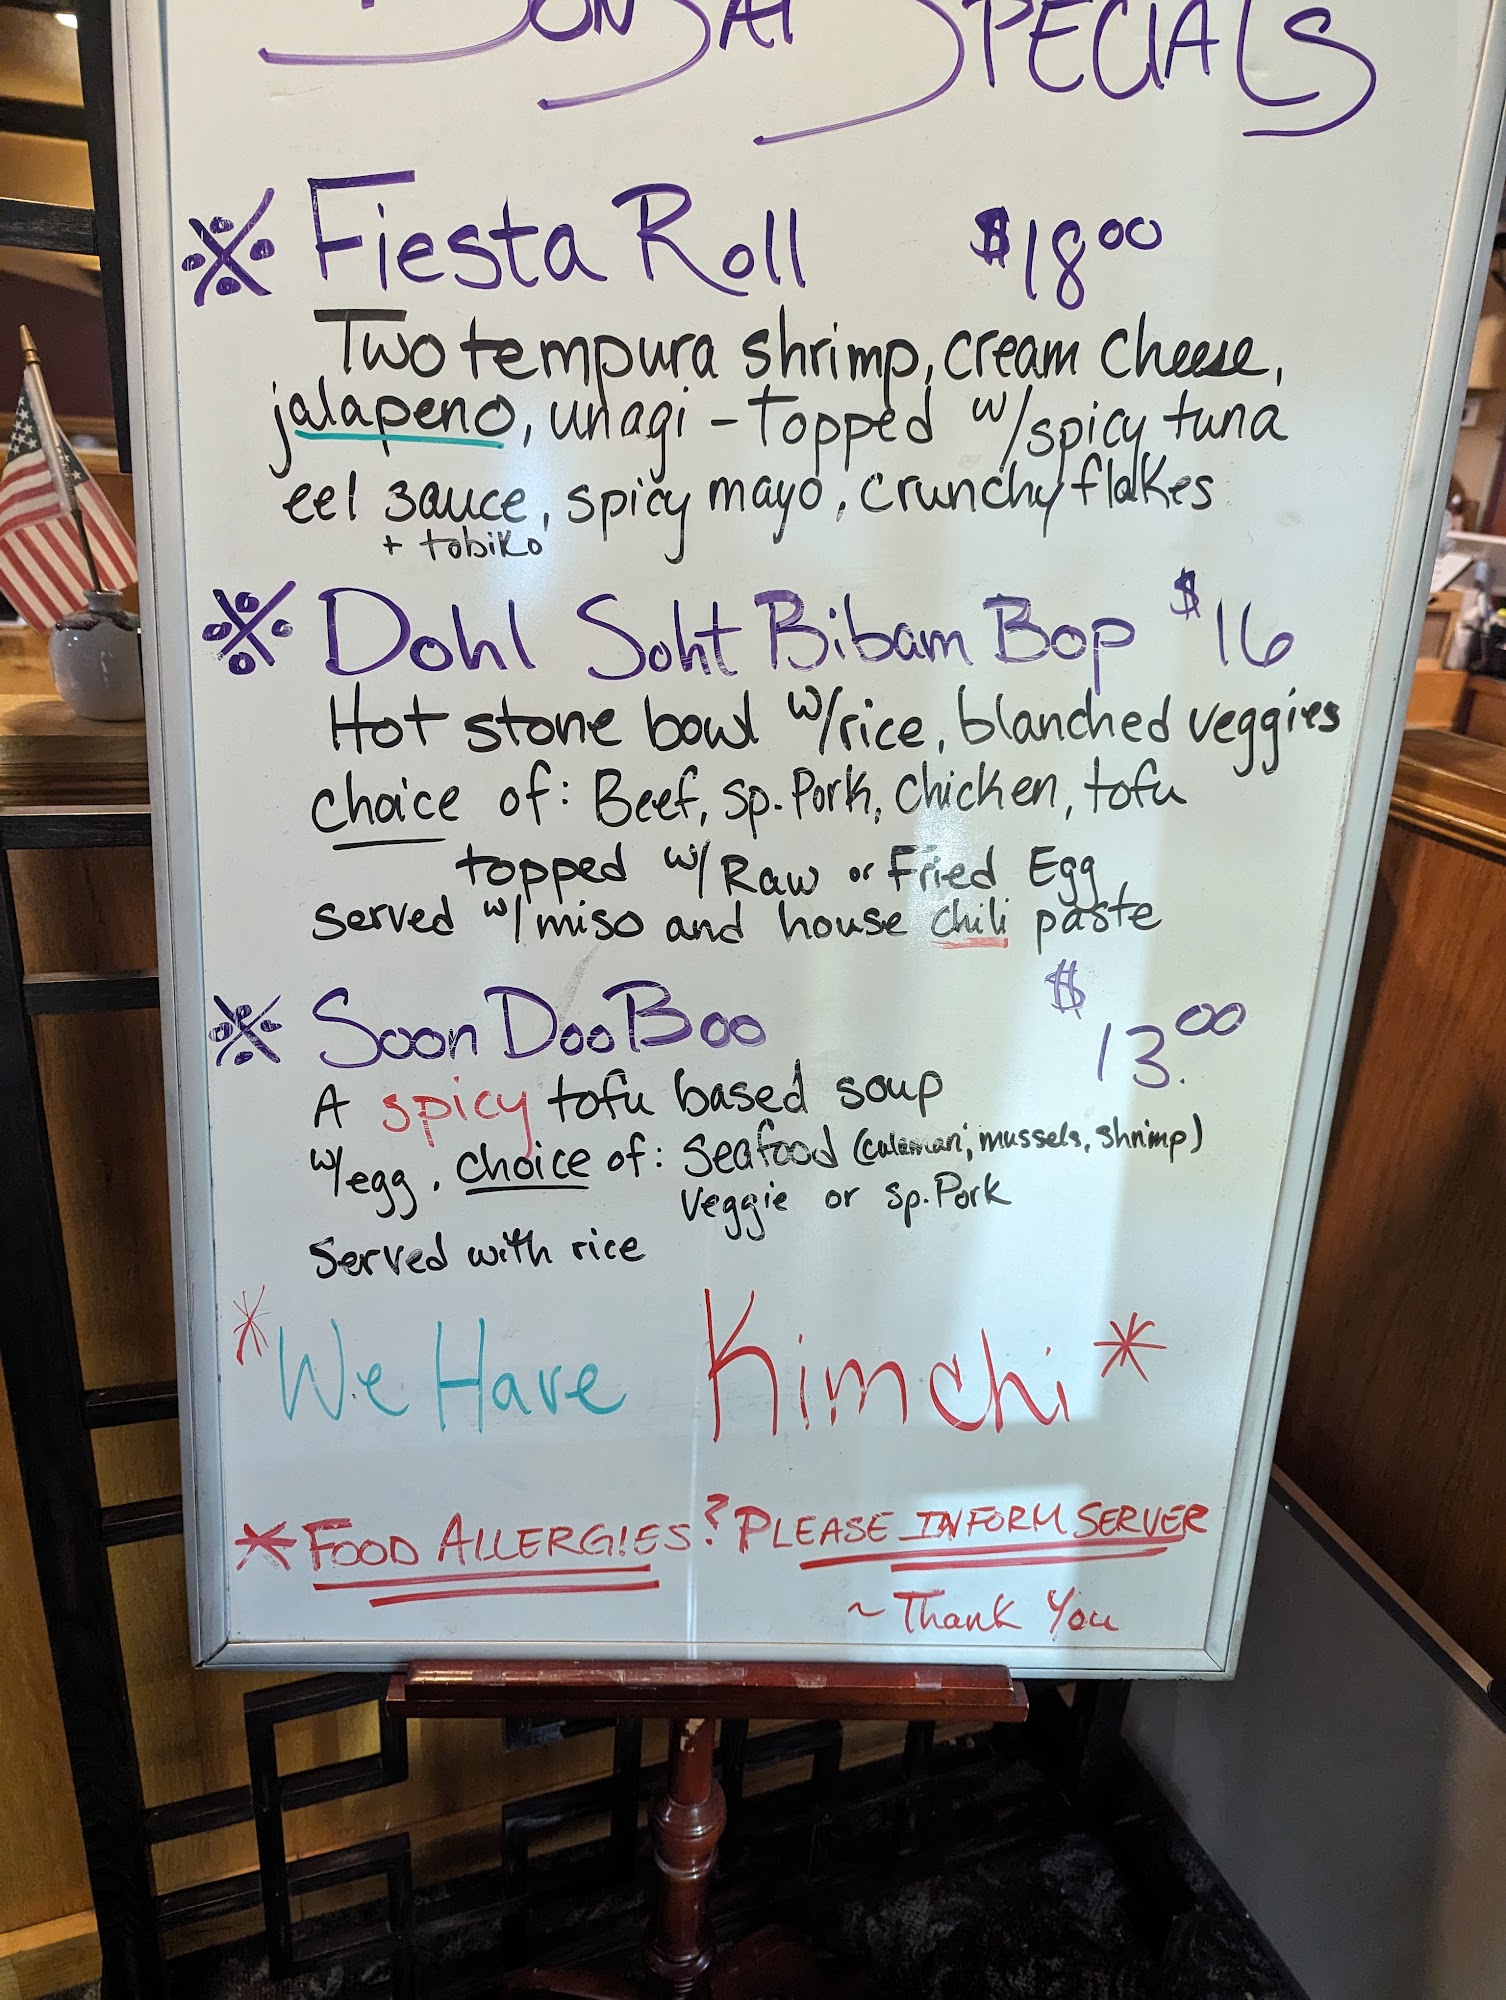 BONSAI SPECIALS
※ Fiesta Roll $18.00
Two tempura shrimp, cream cheese,
jalapeno, unagi - topped w/spicy tuna
eel sauce, spicy mayo, crunchy flakes
+ tobiko
※ Dohl Soht Bibam Bop $16
Hot stone bowl w/rice, blanched veggies
choice of: Beef, sp. Pork, Chicken, tofu
topped w/ Raw or Fried Egg
served w/miso and house chili paste
※ Soon Doo Boo $13.00
A spicy tofu based soup
w/egg, choice of: Seafood (calamari, mussels, shrimp)
veggie or sp. Pork
Served with rice
*We Have Kimchi*
*FOOD ALLERGIES? PLEASE INFORM SERVER
~ Thank You